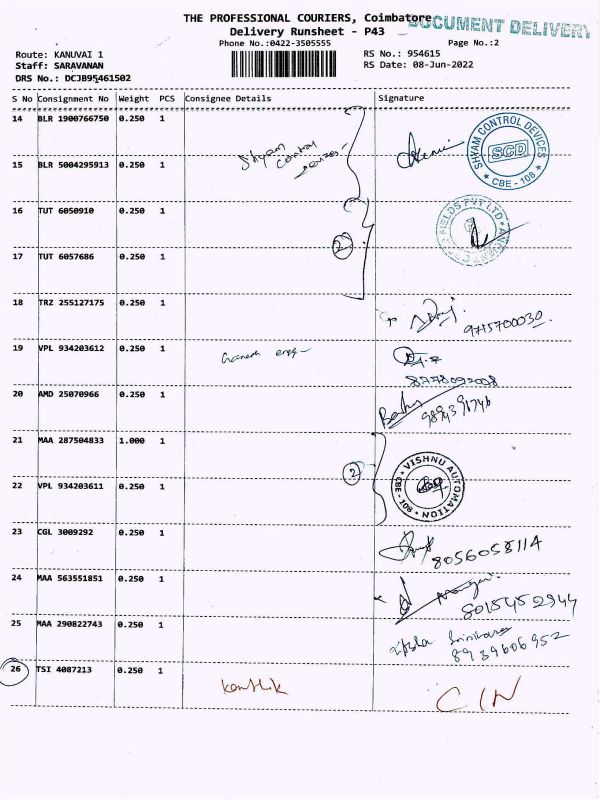 THE PROFESSIONAL COURIERS, Coimbatore
DOCUMENT DELIVERY
Delivery Runsheet - P43
Phone No.:0422-3505555
Page No.:2
Route: KANUVAI 1
RS No.: 954615
Staff: SARAVANAN
RS Date: 08-Jun-2022
DRS No.: DCJB95461502
S No Consignment No Weight PCS Consignee Details Signature
14 BLR 1900766750 0.250 1
Shyam control
SHYAM CONTROL DEVICES
SCD
CBE - 108
15 BLR 5004295913 0.250 1
16 TUT 6050910 0.250 1
FIELDS PVT LTD
2
17 TUT 6057686 0.250 1
18 TRZ 255127175 0.250 1
9715700030.
19 VPL 934203612 0.250 1
Ganesh engg
8778092008
20 AMD 25070966 0.250 1
21 MAA 287504833 1.000 1
2
VISHNU AUTOMATION
CBE - 108
22 VPL 934203611 0.250 1
23 CGL 3009292 0.250 1
8056058114
24 MAA 563551851 0.250 1
8015452944
25 MAA 290822743 0.250 1
8939606952
26 TSI 4087213 0.250 1
Karthik
C IN